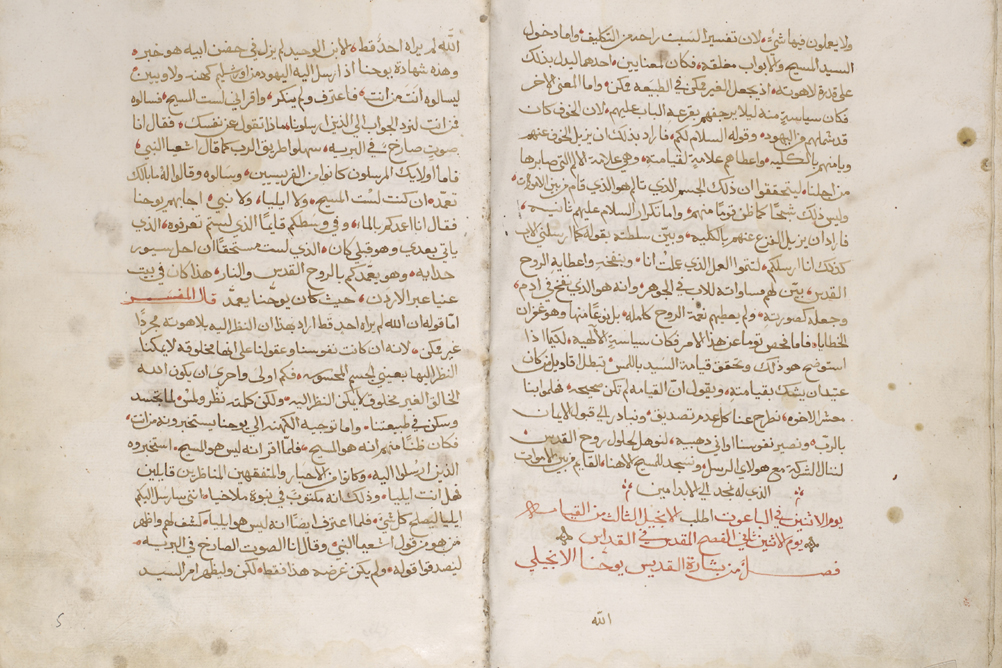 ولا يعلون فيها شيء، لان تفسير السبت راحه من التكليف، واما دخول
السيد المسيح والابواب مغلقه، فكان لمعنايين، احدهما ليدل بذلك
على قدرة لاهوته، اذ يجعل الغير ممكن في الطبيعه ممكن، واما المعنى الاخر
فكان سياسة منه ليلا يرجفهم بقرعه الباب عليهم، لان الخوف كان
قد شملهم من اليهود، وقوله السلام لكم، فاراد بذلك ان يزيل الخوف عنهم
ويامنهم بالكليه، واعطاهم علامة لقيامته، وهي علامة الالام التي صابرها
من اجلنا، ليتحققوا ان ذلك الجسم الذي تالم هو الذي قام من بين الاموات،
وليس ذلك شبحًا كما ظن قومًا منهم، واما تكرار السلام عليهم ثانية،
فاراد ان يزيل الفزع عنهم بالكليه، وبين سلطته بقوله كما ارسلني الاب
كذلك انا ارسلكم، لتتموا العمل الذي عملت انا، وبنفخه واعطايه الروح
القدس، بين لهم مساواته للاب في الجوهر، وانه هو الذي نفخ في ادم،
وجعله كصورته، ولم يعطيهم نعمة الروح كامله، بل جزءًا منها وهو غفران
الخطايا، فاما فحص توما عن هذا الامر فكان سياسة الاهيه، لكيما اذا
استوضح هو ذلك، وتحقق قيامة السيد باللمس، تبطل اقاويل من كان
عتيدان يشك بقيامته، ويقول ان القيامه لم تكن صحيحه، فهلموا بنا
معشر الاخوه، نطرح عنا كل عدم تصديق، ونبادر الى قول الايمان
بالرب، ونصير نفوسنا اواني ذهبية، لنوهل لحلول روح القدس،
لننال الشركة مع هولاى الرسل، ونسجد للمسيح الاهنا، القايم من بين الاموات
الذي له المجد الى ابد الابدين امين
يوم الاثنين في الباعوت اطلب الانجيل الثالث من القيامه
يوم الاثنين ثاني الفصح المقدس في القداس
فصل من بشارة القديس يوحنا الانجيلي
الله
الله لم يراه احدٌ قط، الابن الوحيد لم يزل في حضن ابيه هو خبر،
وهذه شهادة يوحنا اذ ارسل اليه اليهود من اورشليم كهنه ولاويين
ليسالوه انت من انت، فاعترف ولم ينكر، واقر اني لست المسيح، فسالوه
فمن انت لنرد الجواب الى الذين ارسلونا، ماذا تقول عن نفسك، فقال انا
صوت صارخ في البريه، سهلوا طريق الرب كما قال اشعيا النبي،
فاما اولايك المرسلون كانوا من الفريسيين، وسالوه وقالوا له ما بالك
تعمد، ان كنت لست المسيح، ولا ايليا، ولا نبي، اجابهم يوحنا
فقال انا اعمدكم بالماء، وفي وسطكم قايمًا الذي لستم تعرفوه، الذي
ياتي بعدي وهو قبلي كان، الذي لست مستحقًا ان احل سيور
حذايه، وهو يعمدكم بالروح القدس والنار، هذا كان في بيت
عنيا عبر الاردن، حيث كان يوحنا يعمد قال المفسر
اما قوله ان الله لم يراه احد قط اراد بهذا ان النظر اليه بلاهوته مجردًا
غير ممكن، لانه ان كانت نفوسنا وعقولنا على انها مخلوقه لا يمكننا
النظر اليها بعيني الجسم المحسوسه، فكم اولى واحرى ان يكون الله
الخالق الغير مخلوق لا يمكن النظر اليه، ولكن كلمته نظر ولمس، لما تجسد
وسكن في طبيعتنا، واما توجيه الكهنه الى يوحنا يستخبرونه من انت،
فكان ظنًا منهم انه هو المسيح، فلما اقر انه ليس هو المسيح، استخبروه
الذين ارسلوا اليه، وكانوا من الاحبار والمتفقهين المناظرين قايلين
هل انت ايليا، وذلك انه مكتوب في نبوة ملاخيا، انني سارسل اليكم
ايليا ليصلح كل شي، فلما اعترف ايضًا انه ليس هو ايليا، كشف لهم واظهر
من هو من قول اشعيا النبي، وقال انا الصوت الصارخ في البريه،
ليصدقوا قوله، ولم يكن غرضه هذا فقط، لكن وليظهر امر السيد